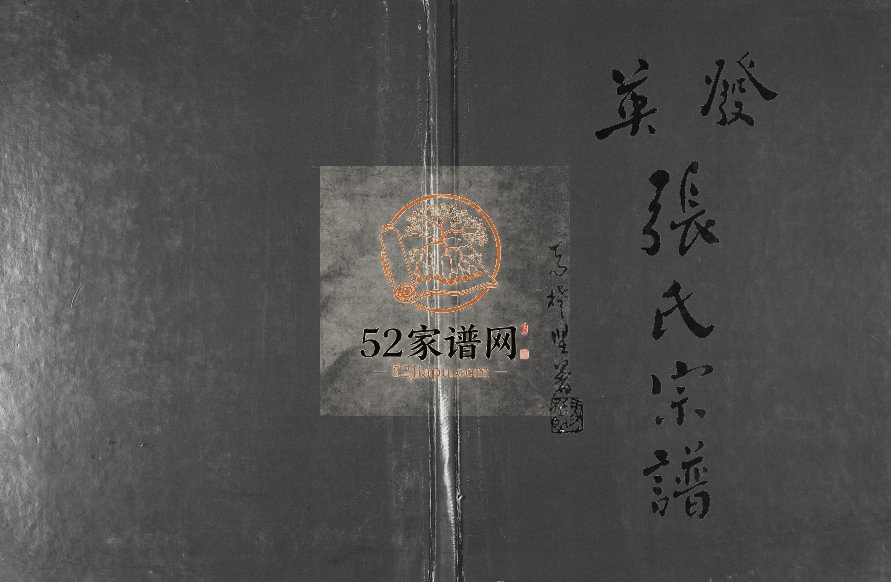 發英
張氏宗譜
52家谱网
52jiapu.com